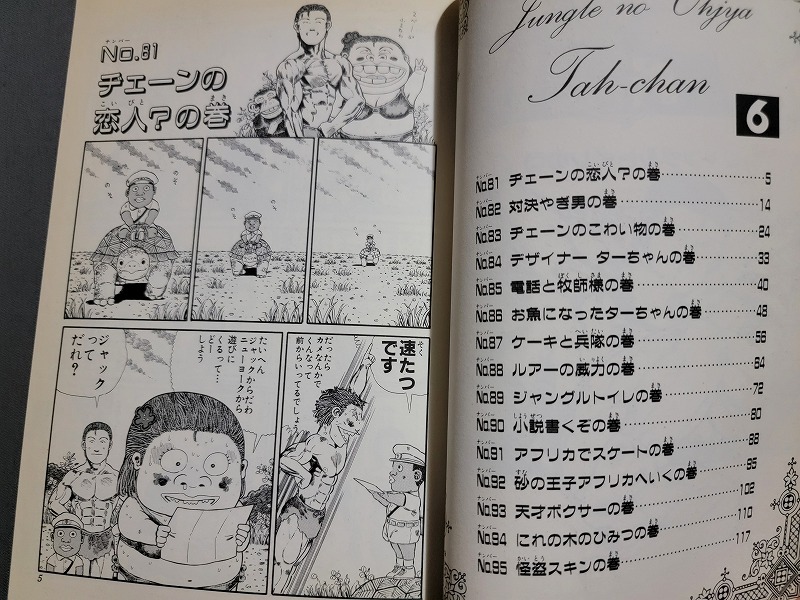 ナンバー
No.81
チェーンの
こいびと
まき
恋人?の巻
のそ
のそ
そく
速たつ
です
だったら
カメなんかで
くんなって
前からいってるでしょう
たいへん
ジャックからだわ
ニューヨークから
遊びに
くるって…
どー
しよう
ジャック
って
だれ?
5
Jungle no Ohjya
Tah-chan
6
No.81 チェーンの恋人?の巻 5
No.82 対決やぎ男の巻 14
No.83 チェーンのこわい物の巻 24
No.84 デザイナー ターちゃんの巻 33
No.85 電話と牧師様の巻 40
No.86 お魚になったターちゃんの巻 48
No.87 ケーキと兵隊の巻 56
No.88 ルアーの威力の巻 64
No.89 ジャングルトイレの巻 72
No.90 小説書くぞの巻 80
No.91 アフリカでスケートの巻 88
No.92 砂の王子アフリカへいくの巻 95
No.93 天才ボクサーの巻 102
No.94 にれの木のひみつの巻 110
No.95 怪盗スキンの巻 117